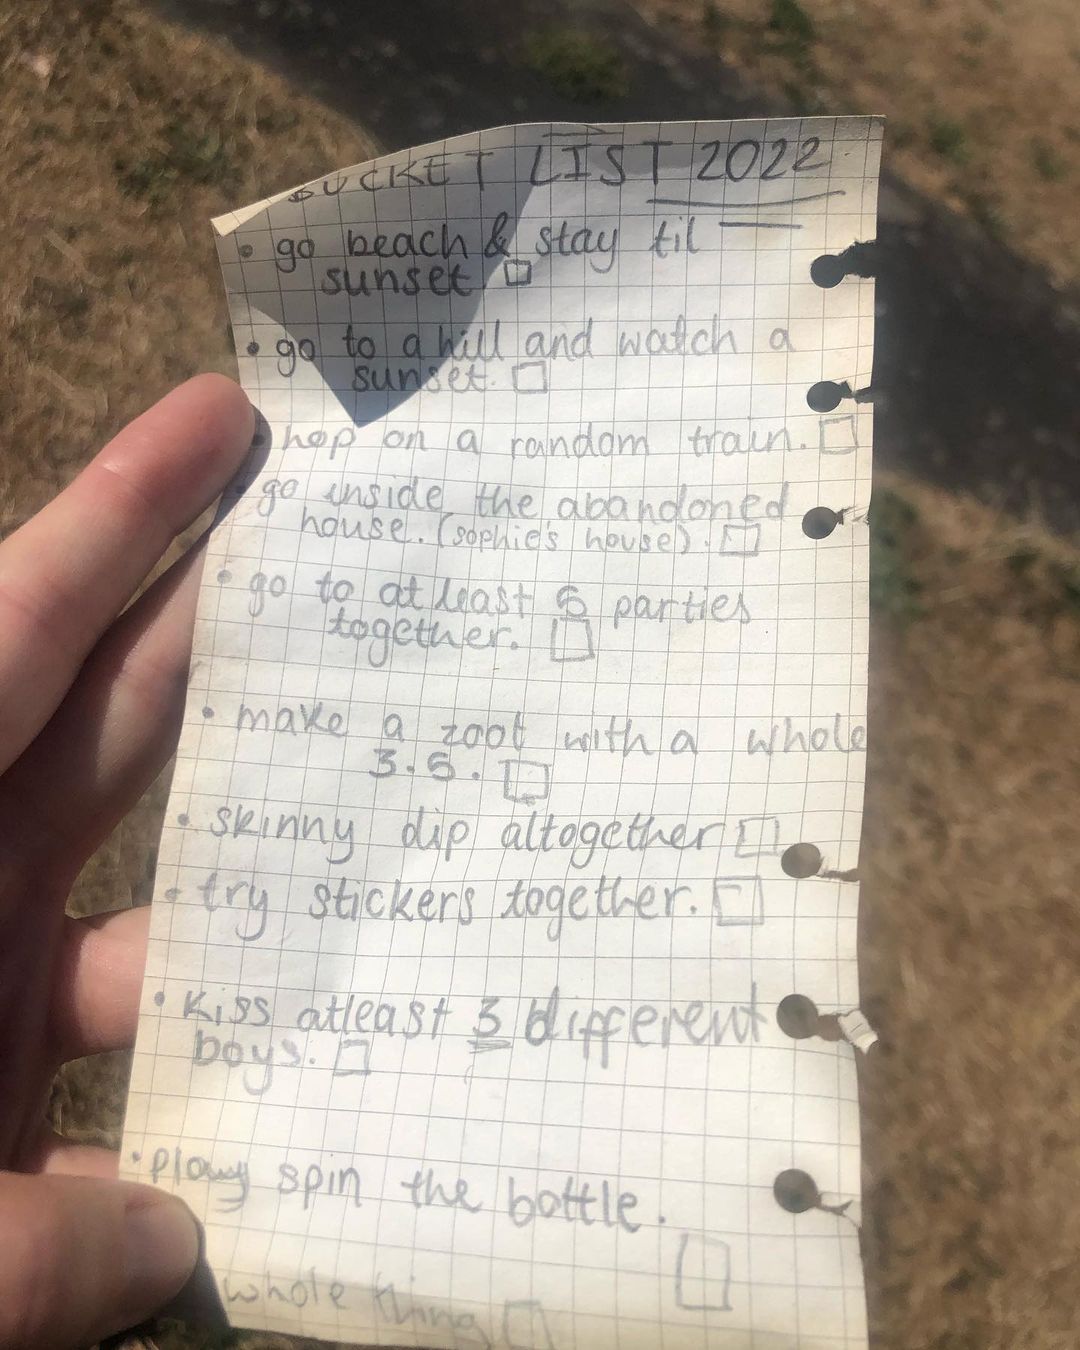 BUCKET LIST 2022
• go beach & stay til
sunset
• go to a hill and watch a
sunset.
• hop on a random train.
• go inside the abandoned
house. (sophie's house).
• go to at least 5 parties
together.
• make a zoot with a whole
3.5.
• skinny dip altogether
• try stickers together.
• kiss atleast 3 different
boys.
• play spin the bottle.
whole thing